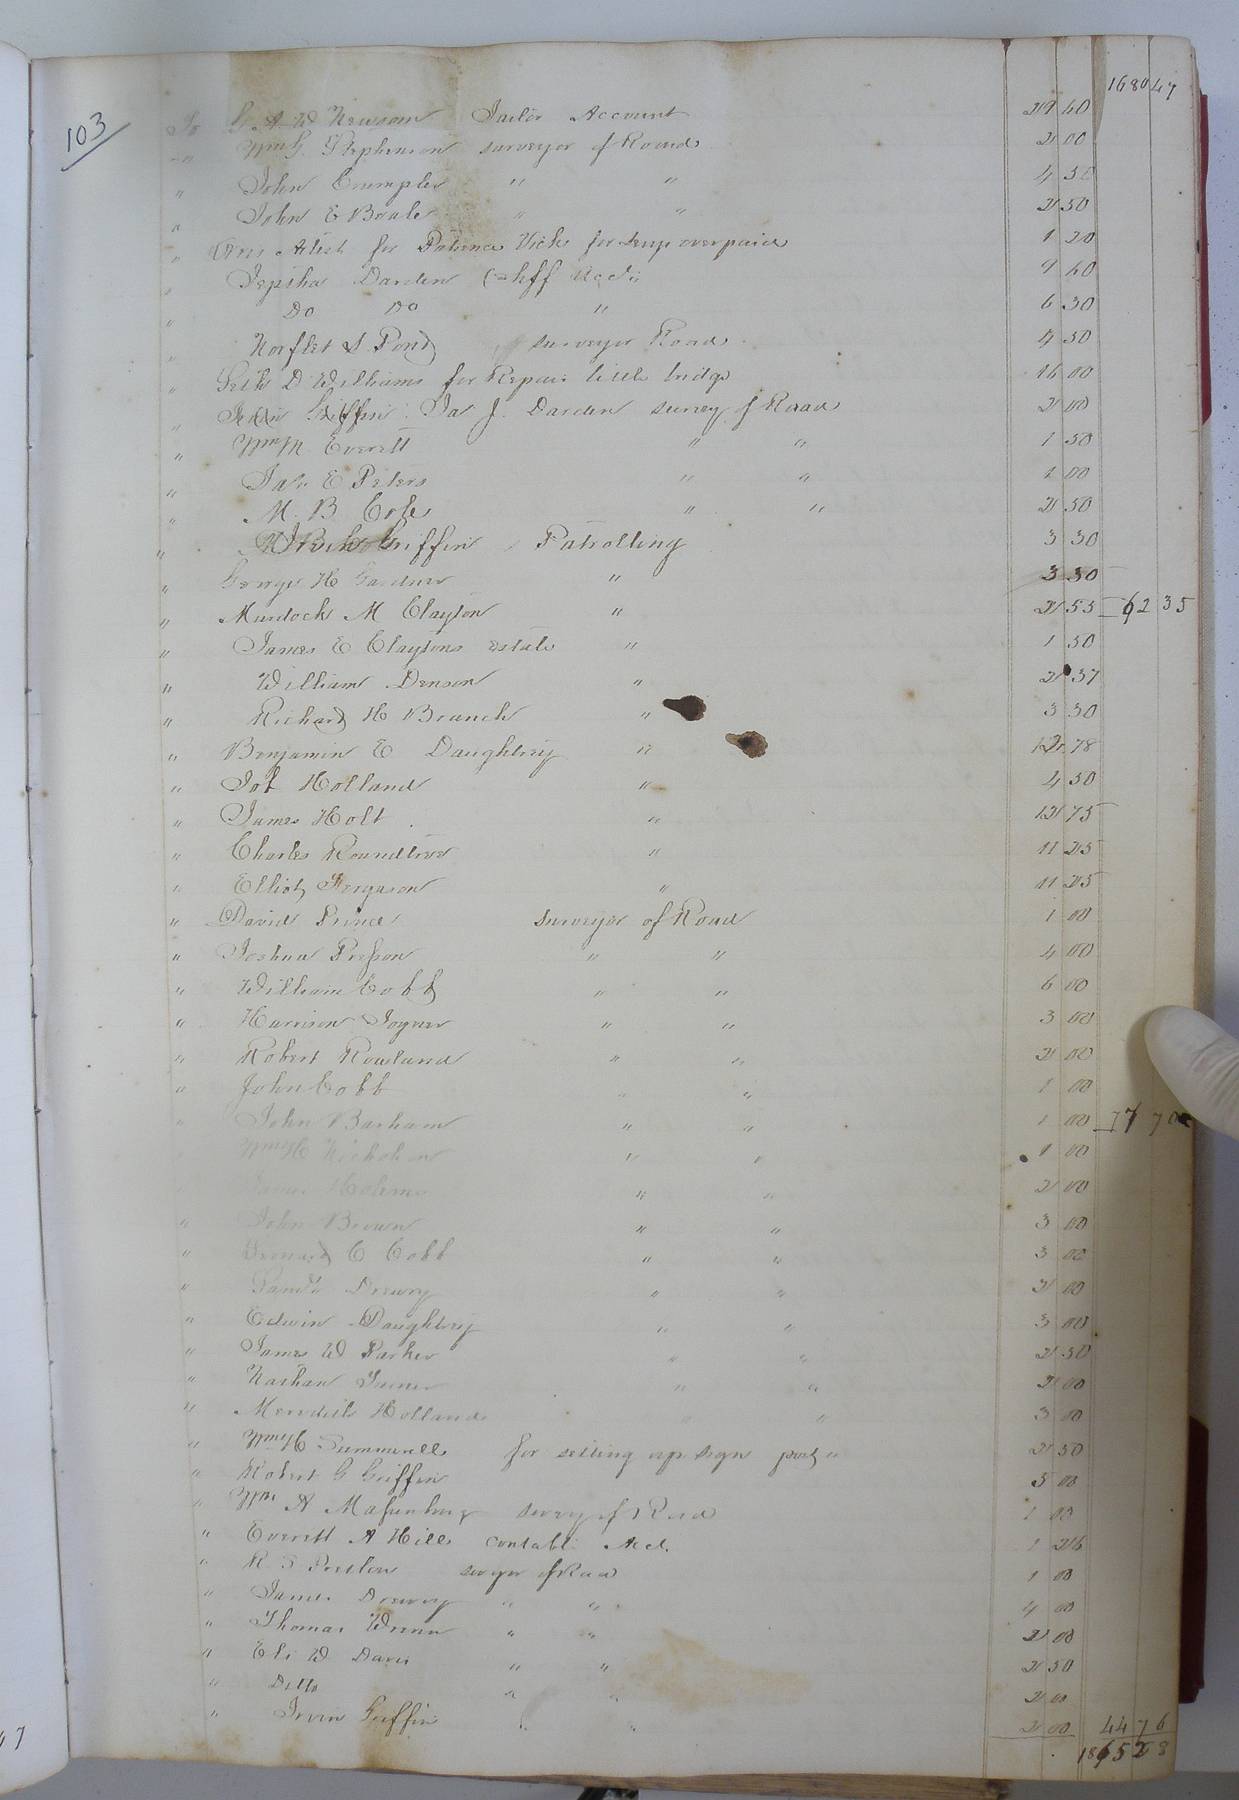 103
1680 47
To G. A. W Newsom Jailor Account 29 60
" Wm G. Stephenson surveyor of Roads 2 00
" John Crumpler " " 4 50
" John E Beale " " 2 50
" for Patience Vick for overpaid 1 20
" Jepsha Darden Acct 9 60
" Do Do " 6 30
" Norflet S. Pond surveyor Road 4 50
" Seth D Williams for Repair little bridge 16 00
" Griffin Ja J. Darden survey of Road 2 00
" Wm M. Everett " " 1 50
" Jas. E Peters " " 1 00
" M. B Cole " " 2 50
" Griffin Patrolling 3 30
" George H Gardner " 3 30
" Murdock M Clayton " 2 55 62 35
" James E Claytons estate " 1 50
" William Denson " 2 37
" Richard H Branch " 3 30
" Benjamin E Daughtrey " 12 78
" Job Holland " 4 50
" James Holt " 12 75
" Charles Roundtree " 11 25
" Elliot Ferguson " 11 25
" David Prince surveyor of Road 1 00
" Joshua Presson " " 4 00
" William Cobb " " 6 00
" Harrison Joyner " " 3 00
" Robert Rowland " " 2 00
" John Cobb " " 1 00
" John Barham " " 1 00 77 70
" Wm H Nicholson " " 1 00
James Holmes " " 2 00
" John Brown " " 3 00
" Leonard C Cobb " " 3 00
" Saml. Drewry " " 2 00
" Edwin Daughtrey " " 3 00
" James W Parker " " 2 50
" Nathan Turner " " 2 00
" Meredith Holland " " 3 00
" Wm H Summerell for setting up sign post " 2 50
" Robert G Griffin 5 00
" Wm A Massenburg survey of Road 1 00
" Everett A Hill contabl. Act. 1 26
" R S suryor of Road 1 00
" James Drewry " " 4 00
" Thomas Wrenn " " 2 00
" Eli W Davis " " 2 50
" Ditto " " 2 00
" Irvin Griffin " " 2 00 44 76
1865 28